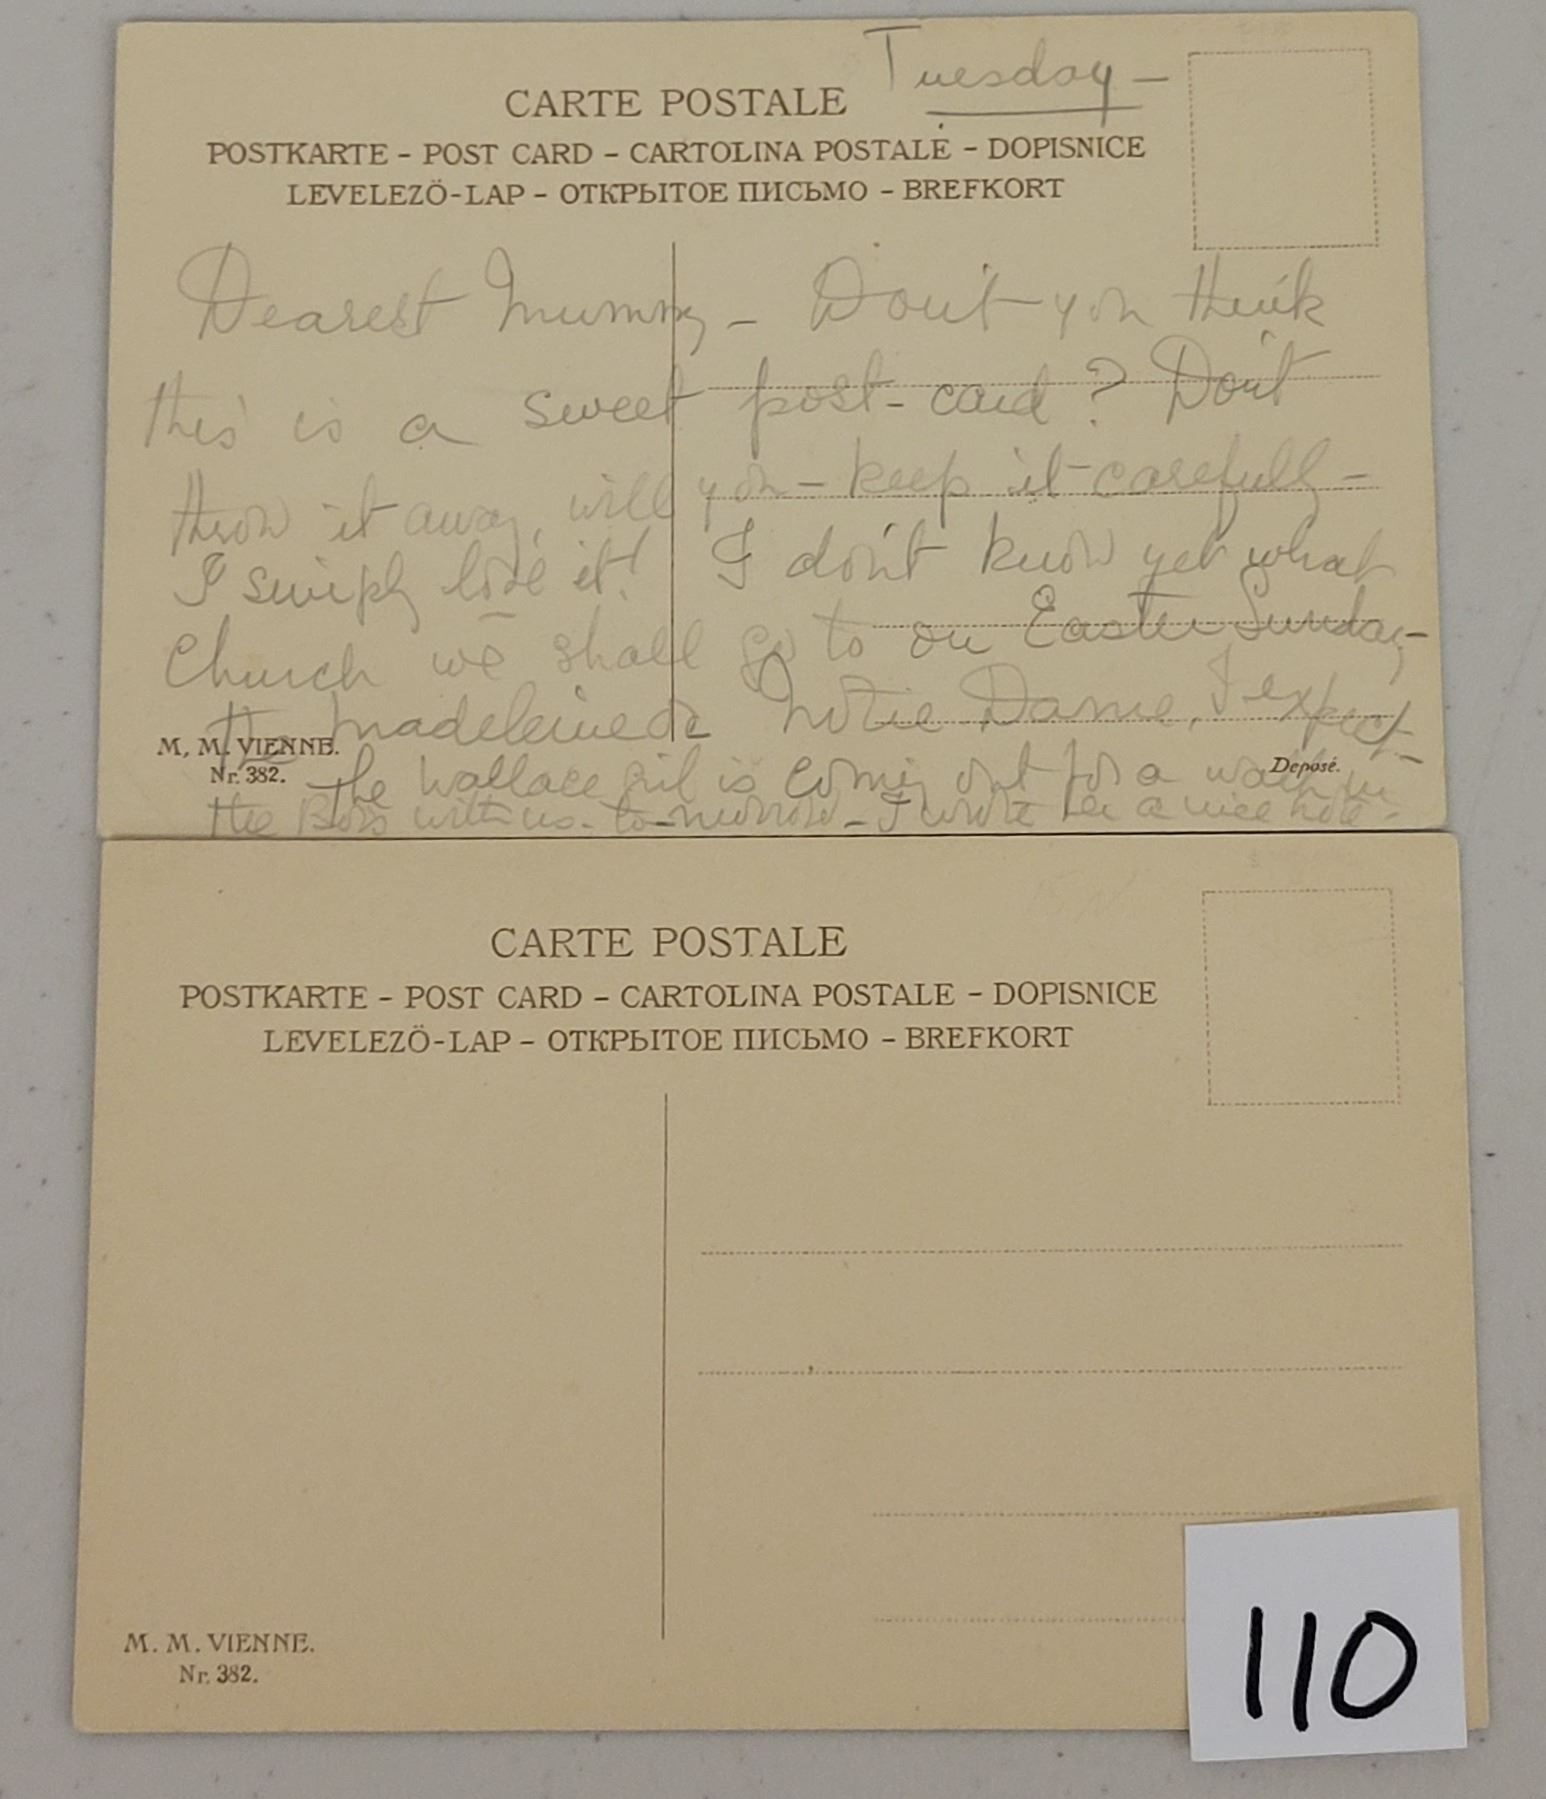 Tuesday –
CARTE POSTALE
POSTKARTE – POST CARD – CARTOLINA POSTALE – DOPISNICE
LEVELEZÖ-LAP – ОТКРЫТОЕ ПИСЬМО – BREFKORT
Dearest Mummy – Don't you think
this is a sweet post-card? Don't
throw it away, will you – keep it carefully –
I simply love it! I don't know yet what
Church we shall go to on Easter Sunday –
The Madeleine Notre Dame, I expect –
M. M. VIENNE.
Nr. 382.
Deposé.
The Wallace girl is coming out for a walk in
the Bois with us to-morrow – I wrote her a nice note –
CARTE POSTALE
POSTKARTE – POST CARD – CARTOLINA POSTALE – DOPISNICE
LEVELEZÖ-LAP – ОТКРЫТОЕ ПИСЬМО – BREFKORT
M. M. VIENNE.
Nr. 382.
110